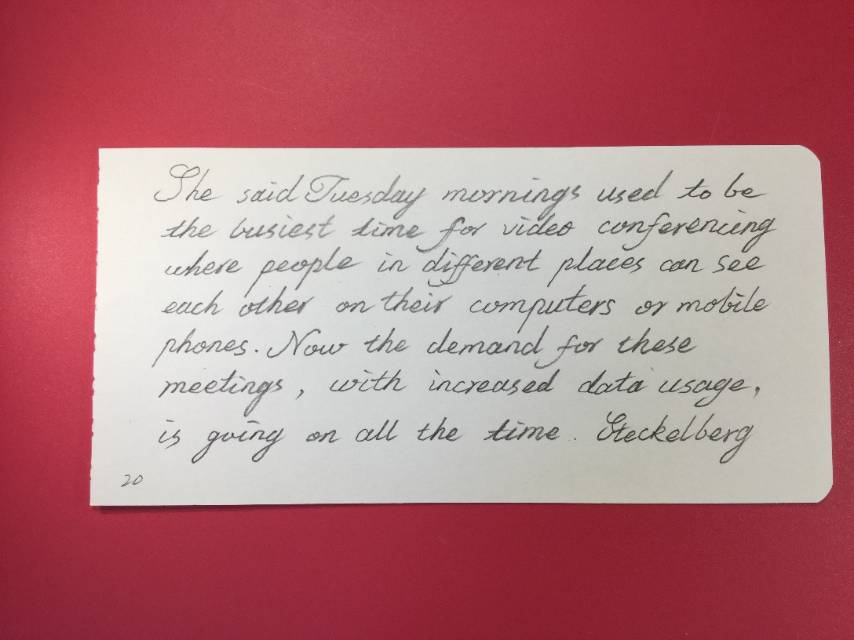 She said Tuesday mornings used to be
the busiest time for video conferencing
where people in different places can see
each other on their computers or mobile
phones. Now the demand for these
meetings, with increased data usage,
is going on all the time. Steckelberg
20